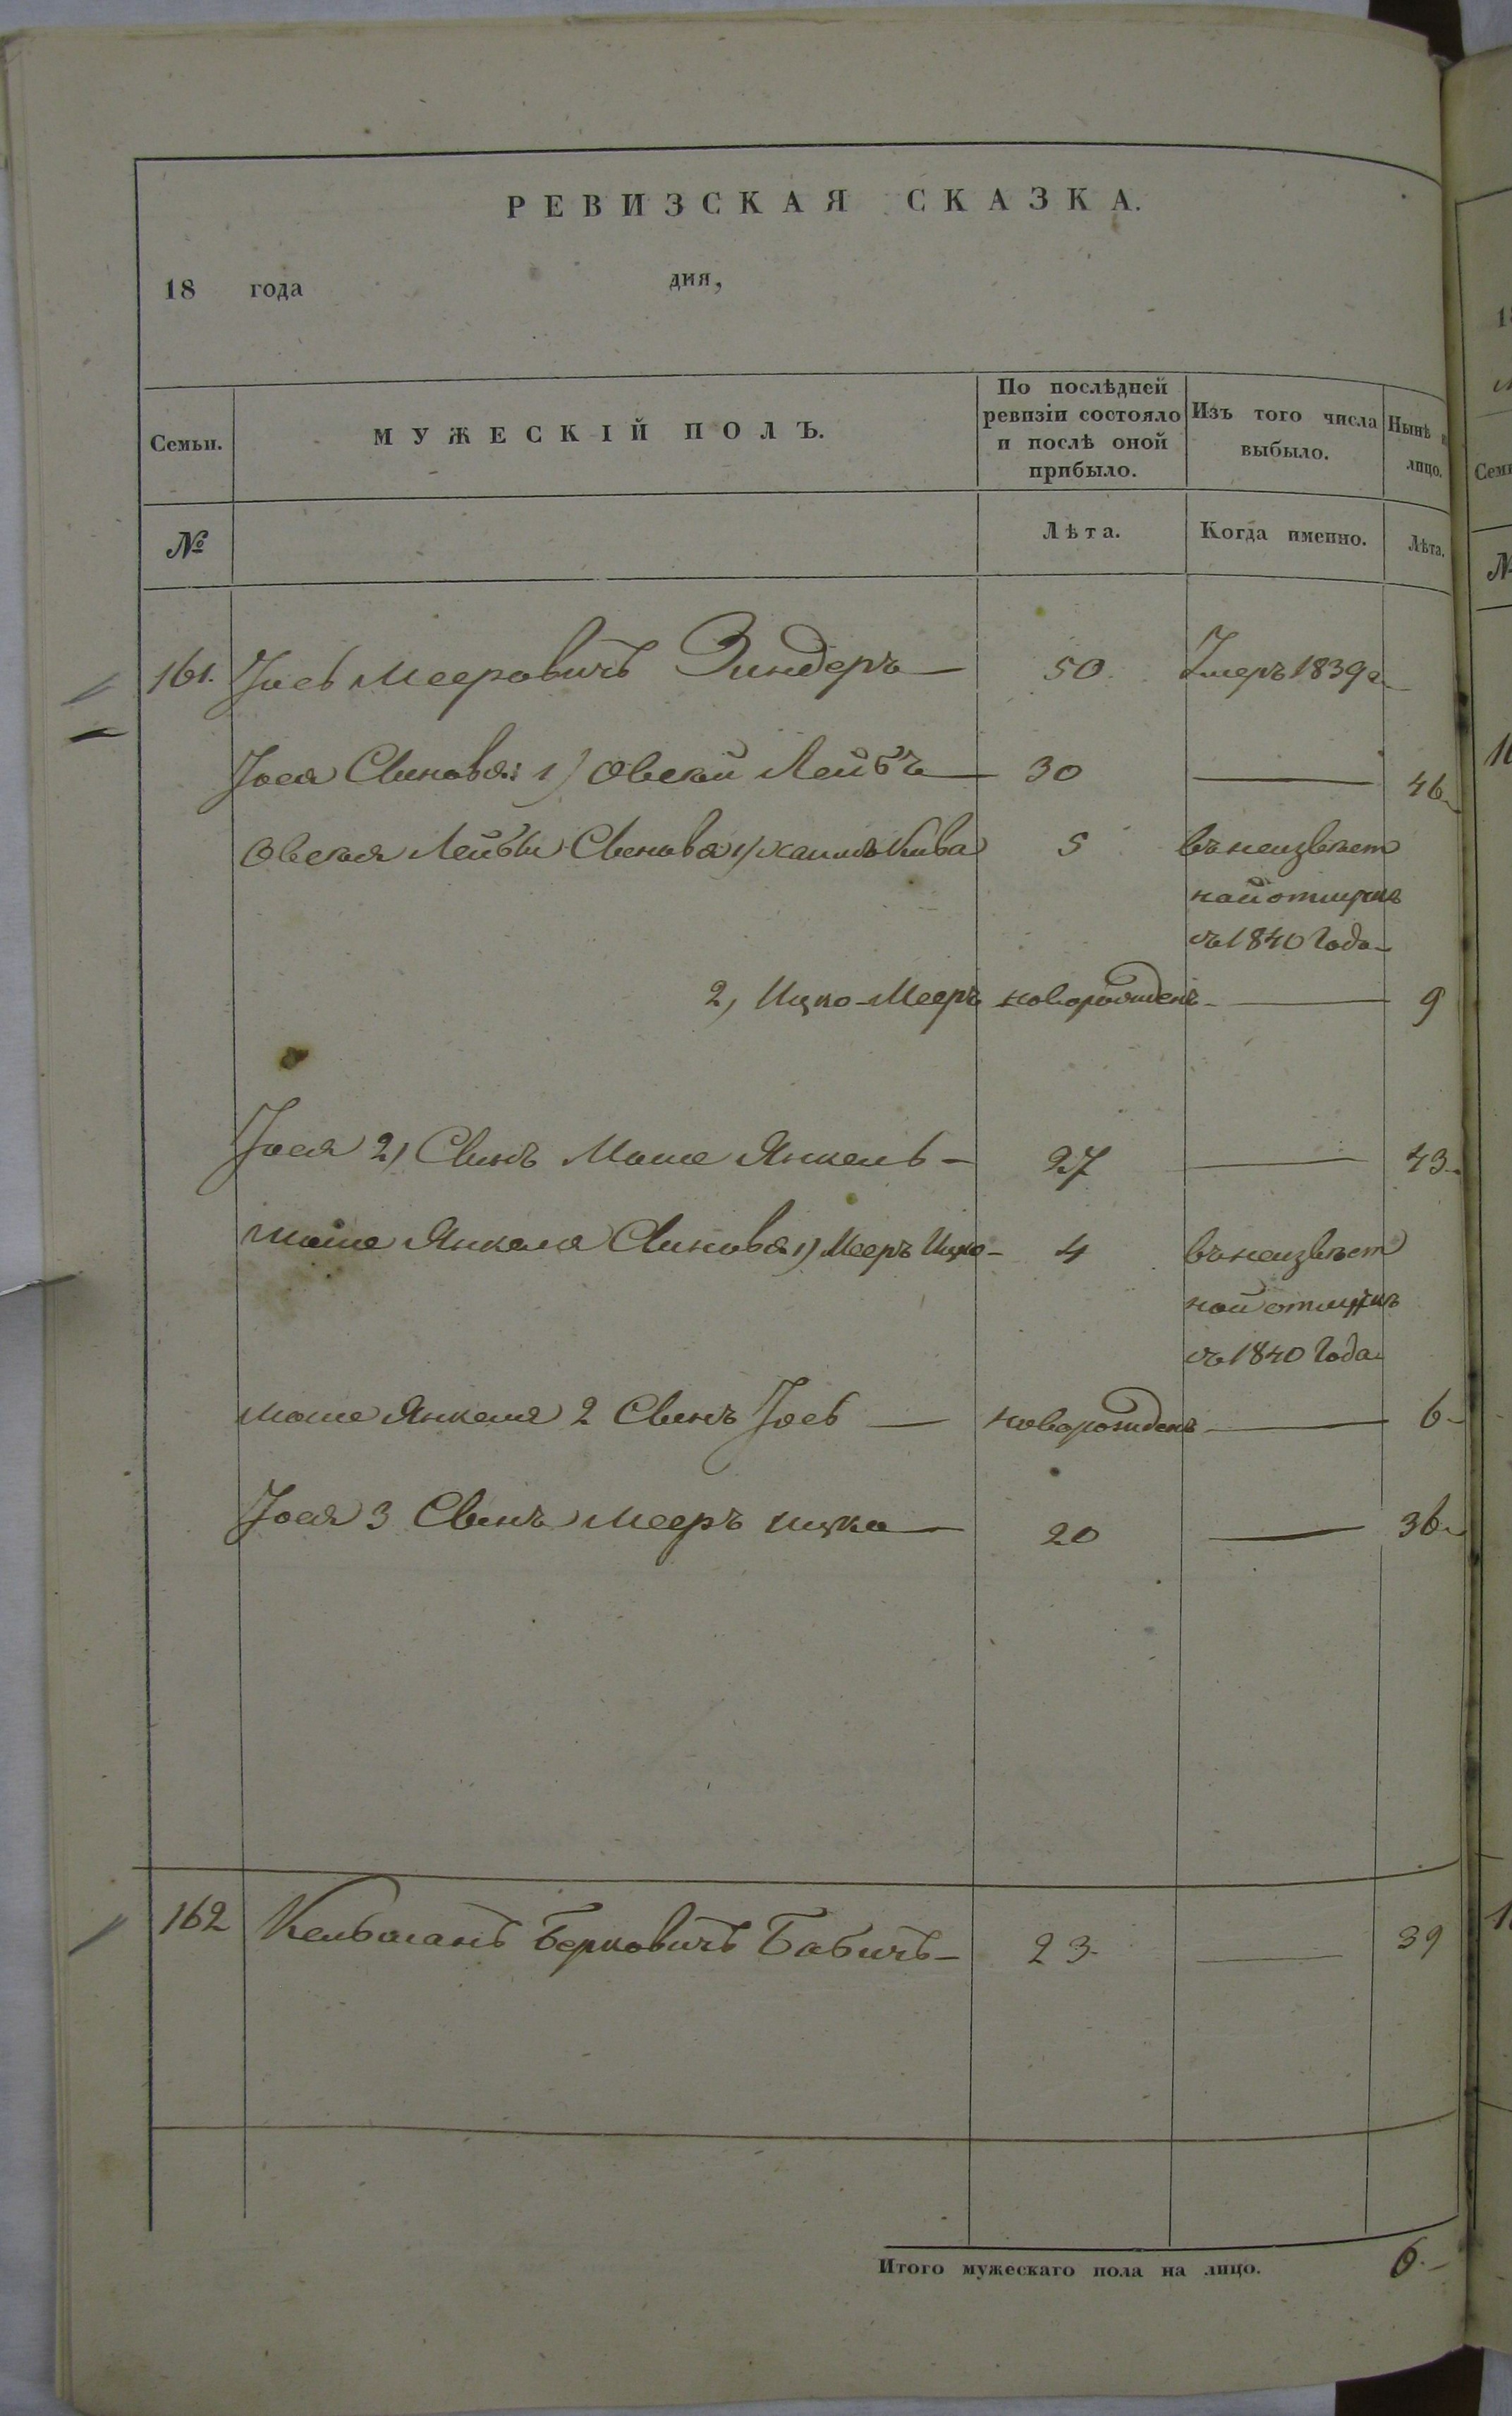 РЕВИЗСКАЯ СКАЗКА.
18 года дня,
Семьи. МУЖЕСКІЙ ПОЛЪ. По послѣдней ревизіи состояло и послѣ оной прибыло. Изъ того числа выбыло. Нынѣ лицо.
№ Лѣта. Когда именно. Лѣта.
161. Іосъ Мееровичъ Зиндеръ — 50. Умеръ 1839 г.
Іося Сыновья: 1) Овсей Лейбъ — 30 — 46
Овсея Лейбы Сыновья 1) Хаимъ Кива 5 въ неизвѣст
ной отлучкѣ
съ 1840 Года
2, Ицко-Мееръ новорожденъ — 9
Іося 2) Сынъ Моше Янкель — 27 — 43
Моше Янкеля Сыновья 1) Мееръ Ицко — 4 въ неизвѣст
ной отлучкѣ
съ 1840 Года
Моше Янкеля 2 Сынъ Іось — новорожденъ — 6
Іося 3 Сынъ Мееръ Ицко — 20 — 36
162 Кельманъ Берковичъ Бабичъ — 23 — 39
Итого мужескаго пола на лицо. 6.